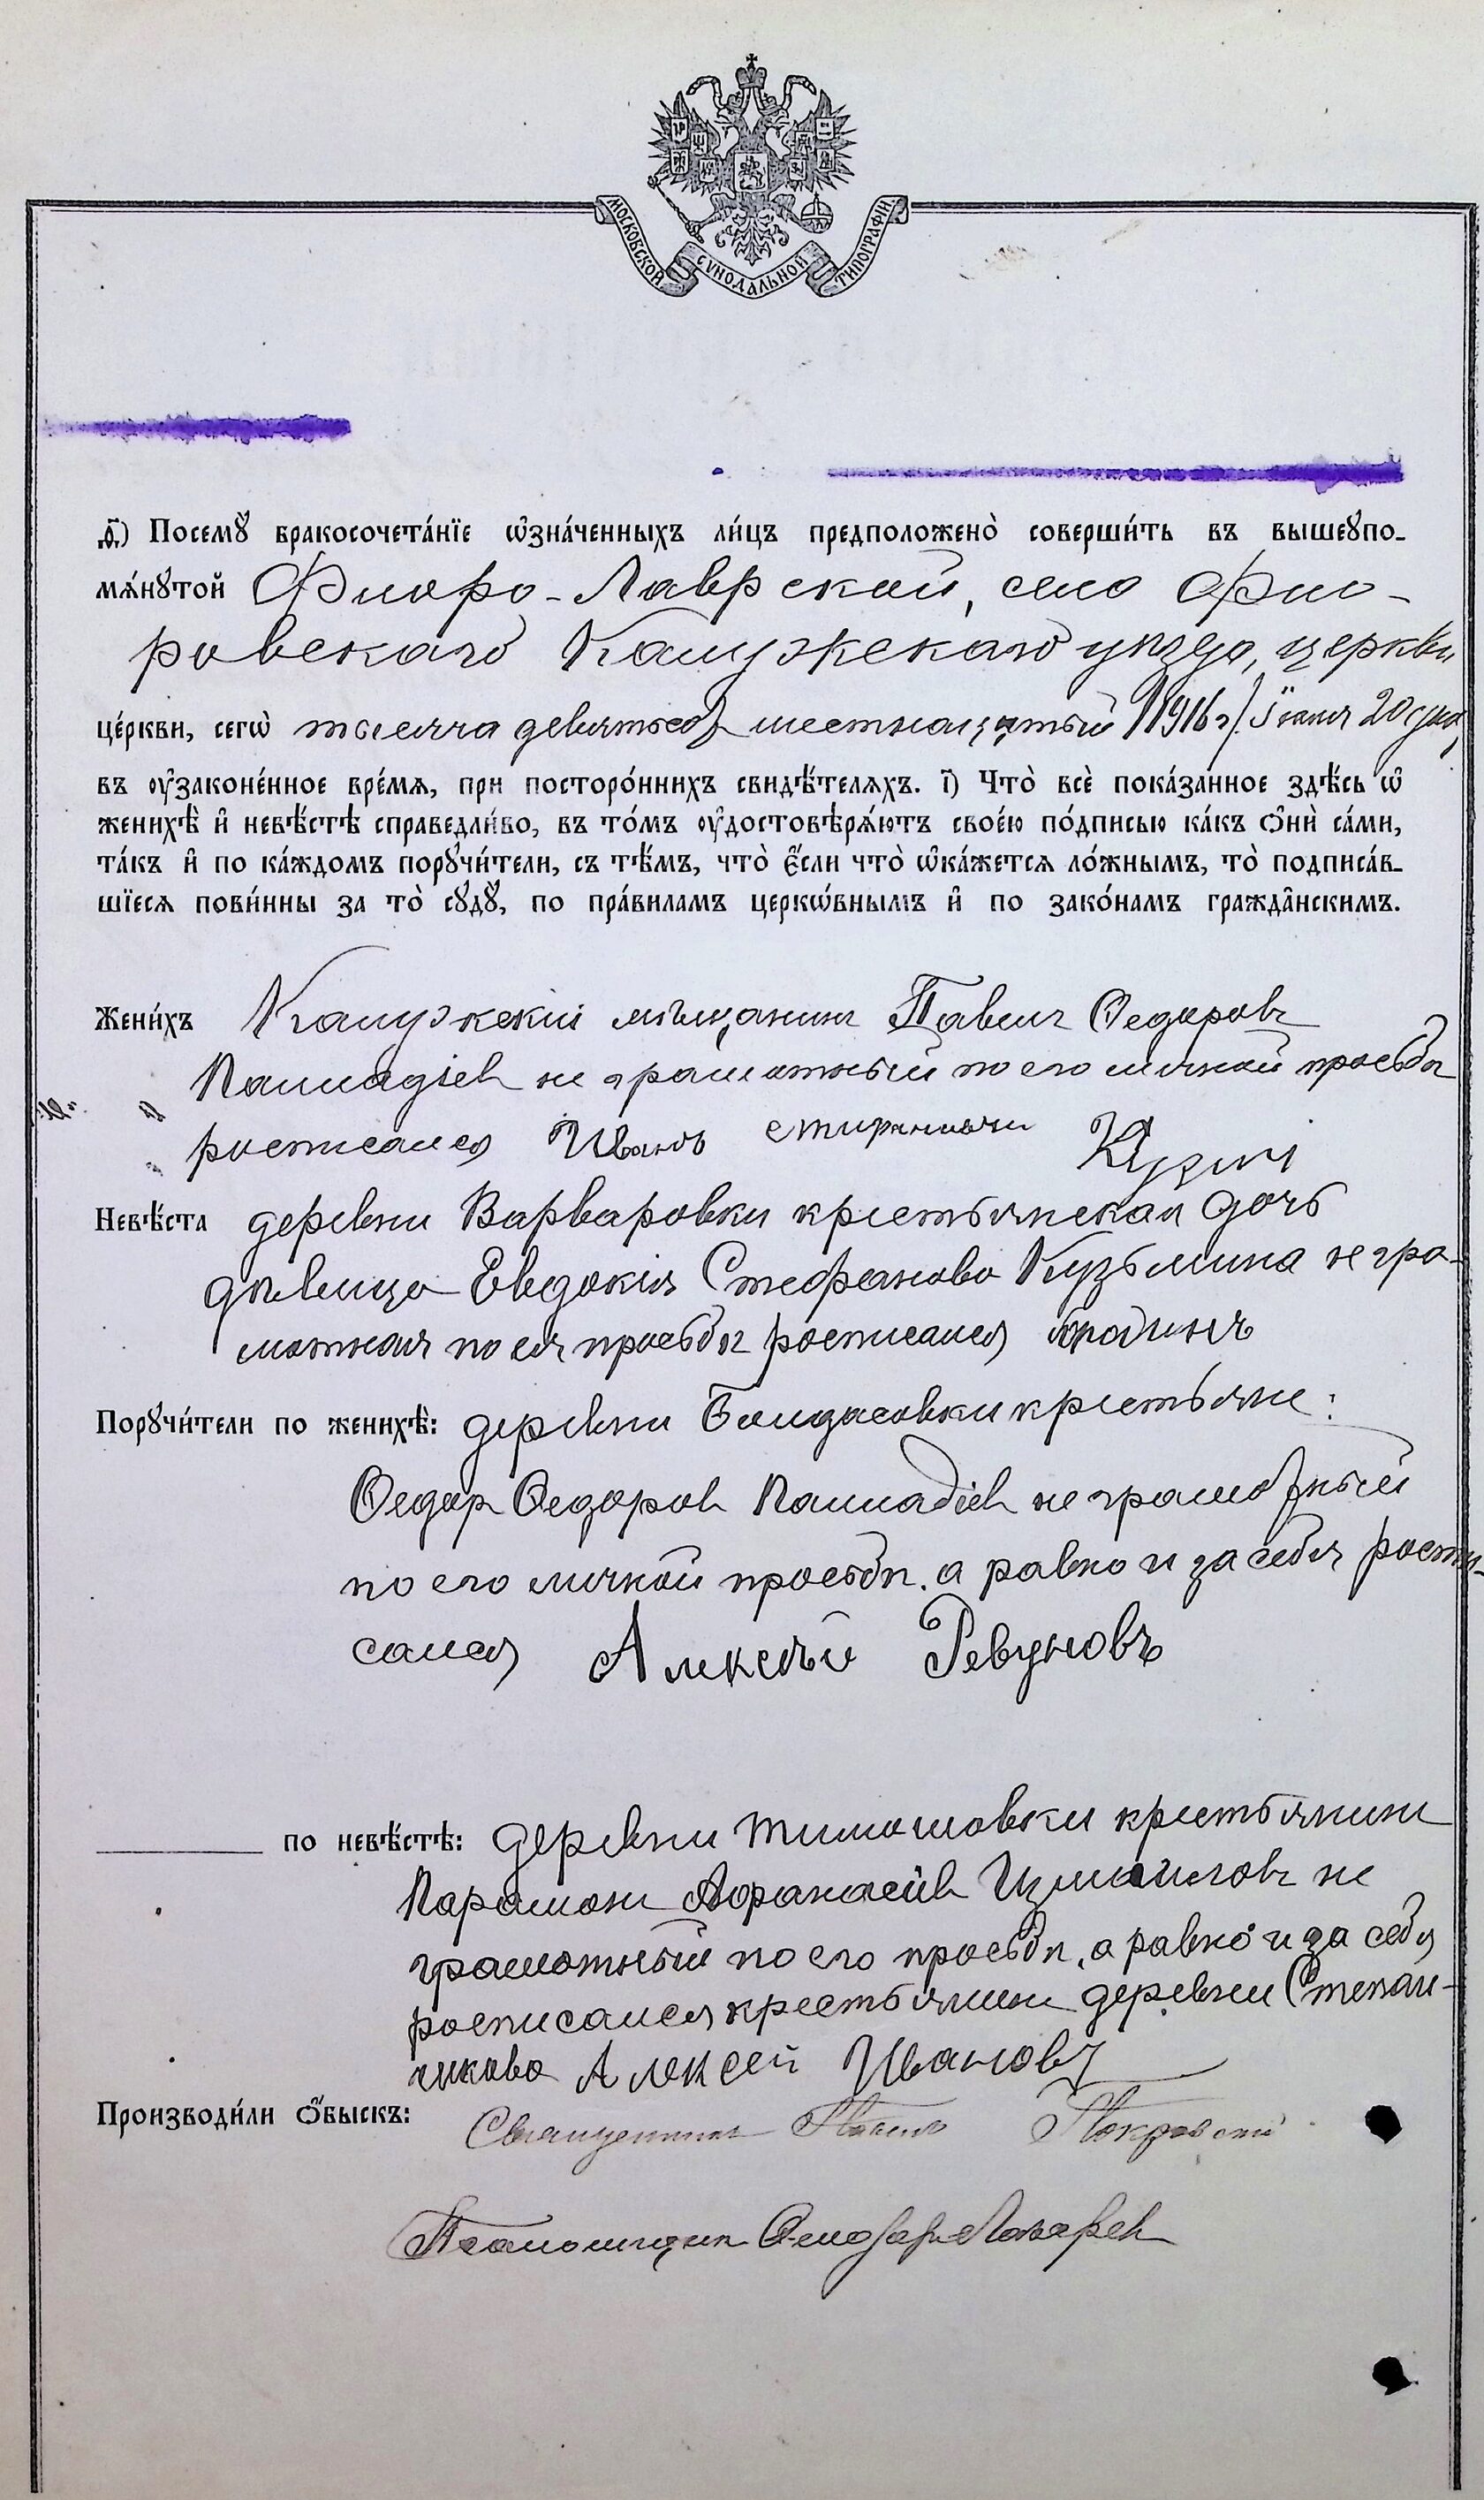 МОСКОВСКОЙ СУНОДАЛЬНОЙ ТИПОГРАФІИ
.Ѳ҃.) Посемꙋ̀ бракосочета́нїе ѡ҆зна́ченныхъ ли́цъ предположено̀ соверши́ть въ вышеꙋпо-
мѧ́нꙋтой Флоро-Лаврской, село Фло-
ровскаго Калужскаго уѣзда, церкви
це́ркви, сегѡ̀ тысяча девятьсот шестнадцатый /1916 г/. Iюня 20 дня,
въ ᲂу҆законе́нное вре́мѧ, при посторо́ннихъ свидѣ́телѧхъ. і҃) Что̀ всѐ пока́занное здѣ́сь ѡ҆
женихѣ̀ и҆ невѣ́стѣ справедли́во, въ то́мъ ᲂу҆достовѣрѧ́ютъ свое́ю по́дписью ка́къ ѻ҆нѝ са́ми,
та́къ и҆ по ка́ждомъ порꙋчи́тели, съ тѣ́мъ, что̀ є҆́сли что̀ ѡ҆ка́жетсѧ ло́жнымъ, то̀ подписа́в-
шїесѧ пови́нны за то̀ сꙋдꙋ̀, по пра́виламъ церкѡ́внымъ и҆ по зако́намъ гражда̑нскимъ.
Жени́хъ Калужскій мѣщанинъ Павелъ Ѳедоровъ
Палладіев не грамотный по его личной просьбѣ
росписался Иванъ
Невѣ́ста деревни Варваровки крестьянская дочь
дѣвица Евдокія Стефанова Кузьмина не гра-
мотная по ея просьбѣ росписался
Порꙋчи́тели по женихѣ̀: деревни Болдасовки крестьяне:
Ѳедор Ѳедоров Палладіев не грамотный
по его личной просьбѣ, а равно и за себя роспи-
сался Алексѣй Ревуновъ
по невѣ́стѣ: деревни Тимошовки крестьянин
Парамон Афанасіев Измаилов не
грамотный по его просьбѣ, а равно и за себя
росписался крестьянин деревни Степан-
чиково Алексей Ивановъ
Производи́ли ѻ҆́быскъ: Священникъ Павелъ Покровскій
Псаломщик Лазарев